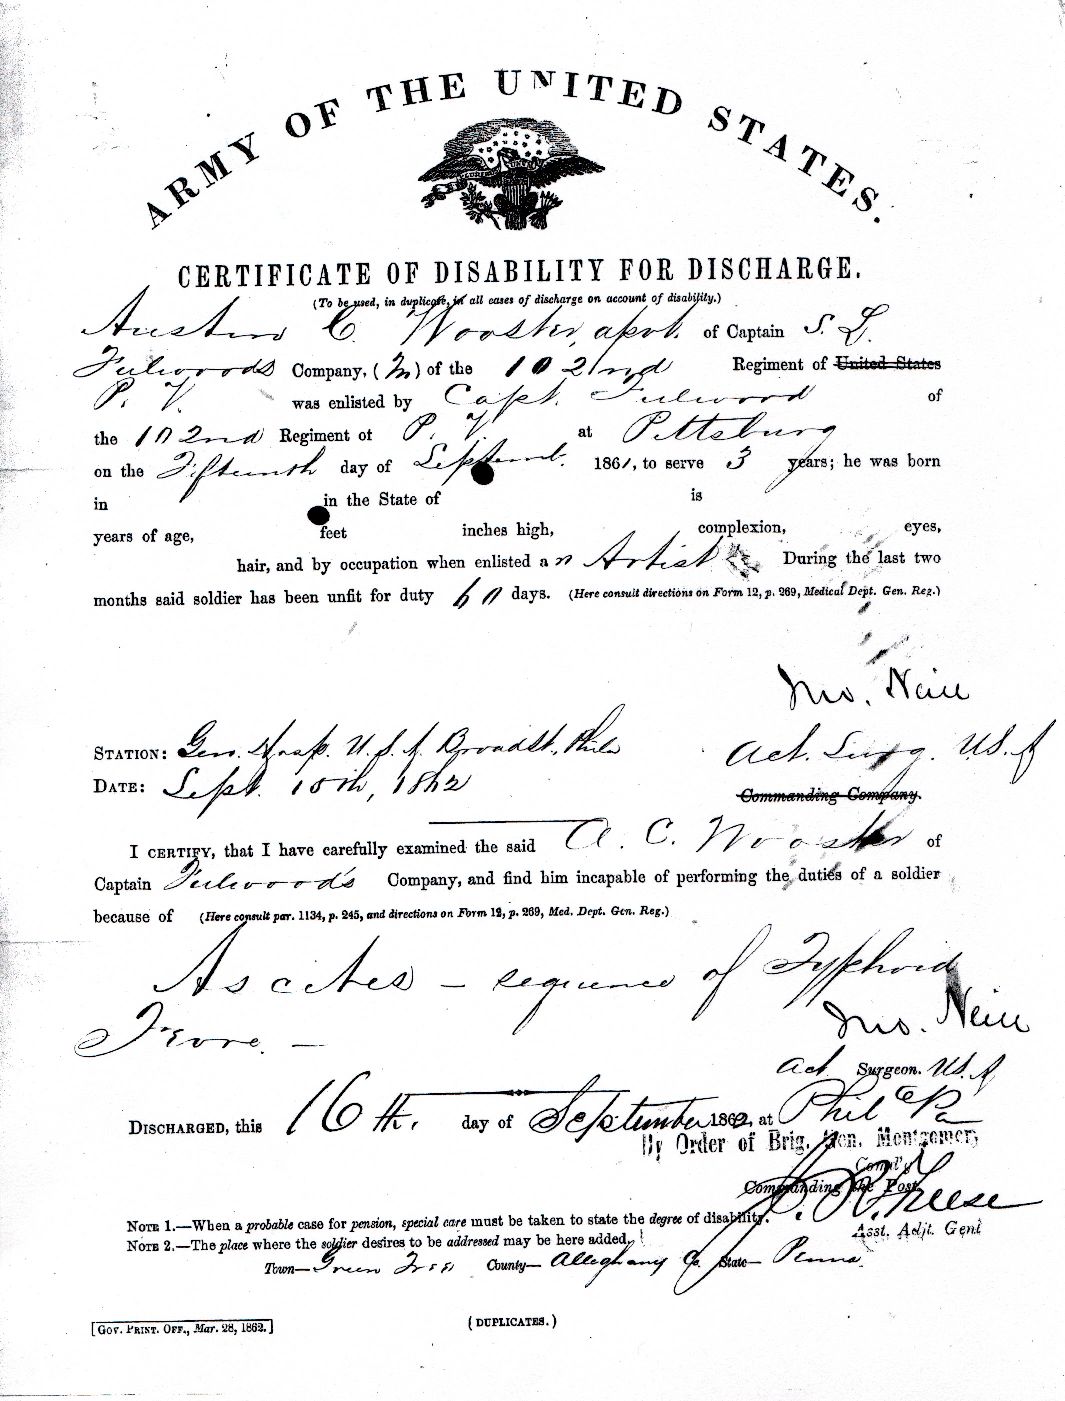 ARMY OF THE UNITED STATES.
CERTIFICATE OF DISABILITY FOR DISCHARGE.
(To be used, in duplicate, in all cases of discharge on account of disability.)
Austin C. Wooster, of Captain S. L.
Fulwoods Company, (M) of the 102nd Regiment of United States
P. V. was enlisted by Capt. Fulwood of
the 102nd Regiment of P. V at Pittsburg
on the Fifteenth day of Septemb. 1861, to serve 3 years; he was born
in in the State of is
years of age, feet inches high, complexion, eyes,
hair, and by occupation when enlisted an Artist During the last two
months said soldier has been unfit for duty 60 days. (Here consult directions on Form 12, p. 269, Medical Dept. Gen. Reg.)
Jno. Neill
STATION: Gen. Hosp. U.S.A. Broad St., Phila Act. Surg. U.S.A
DATE: Sept. 15th, 1862 Commanding Company.
I CERTIFY, that I have carefully examined the said A. C. Wooster of
Captain Fulwood's Company, and find him incapable of performing the duties of a soldier
because of (Here consult par. 1134, p. 245, and directions on Form 12, p. 269, Med. Dept. Gen. Reg.)
Ascites – sequence of Typhoid
Fever. –
Jno. Neill
Act Surgeon. U.S.A
DISCHARGED, this 16th. day of September 1862, at Phila Pa
By Order of Brig. Gen. Montgomery
Comd'g
Commanding the Post.
Freese
Asst. Adjt. Genl
NOTE 1.—When a probable case for pension, special care must be taken to state the degree of disability.
NOTE 2.—The place where the soldier desires to be addressed may be here added.
Town—Green Tree County—Alleghany Co. State—Penna.
[GOV. PRINT. OFF., Mar. 28, 1862.]
(DUPLICATES.)